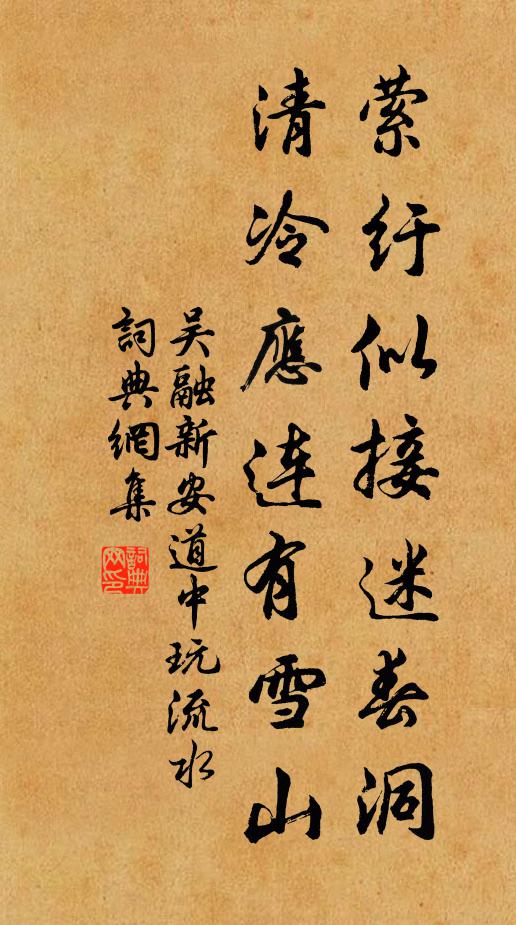 萦纡似接迷春洞
清冷應連有雪山
吴融新安道中玩流水
詞典網集
詞典網印